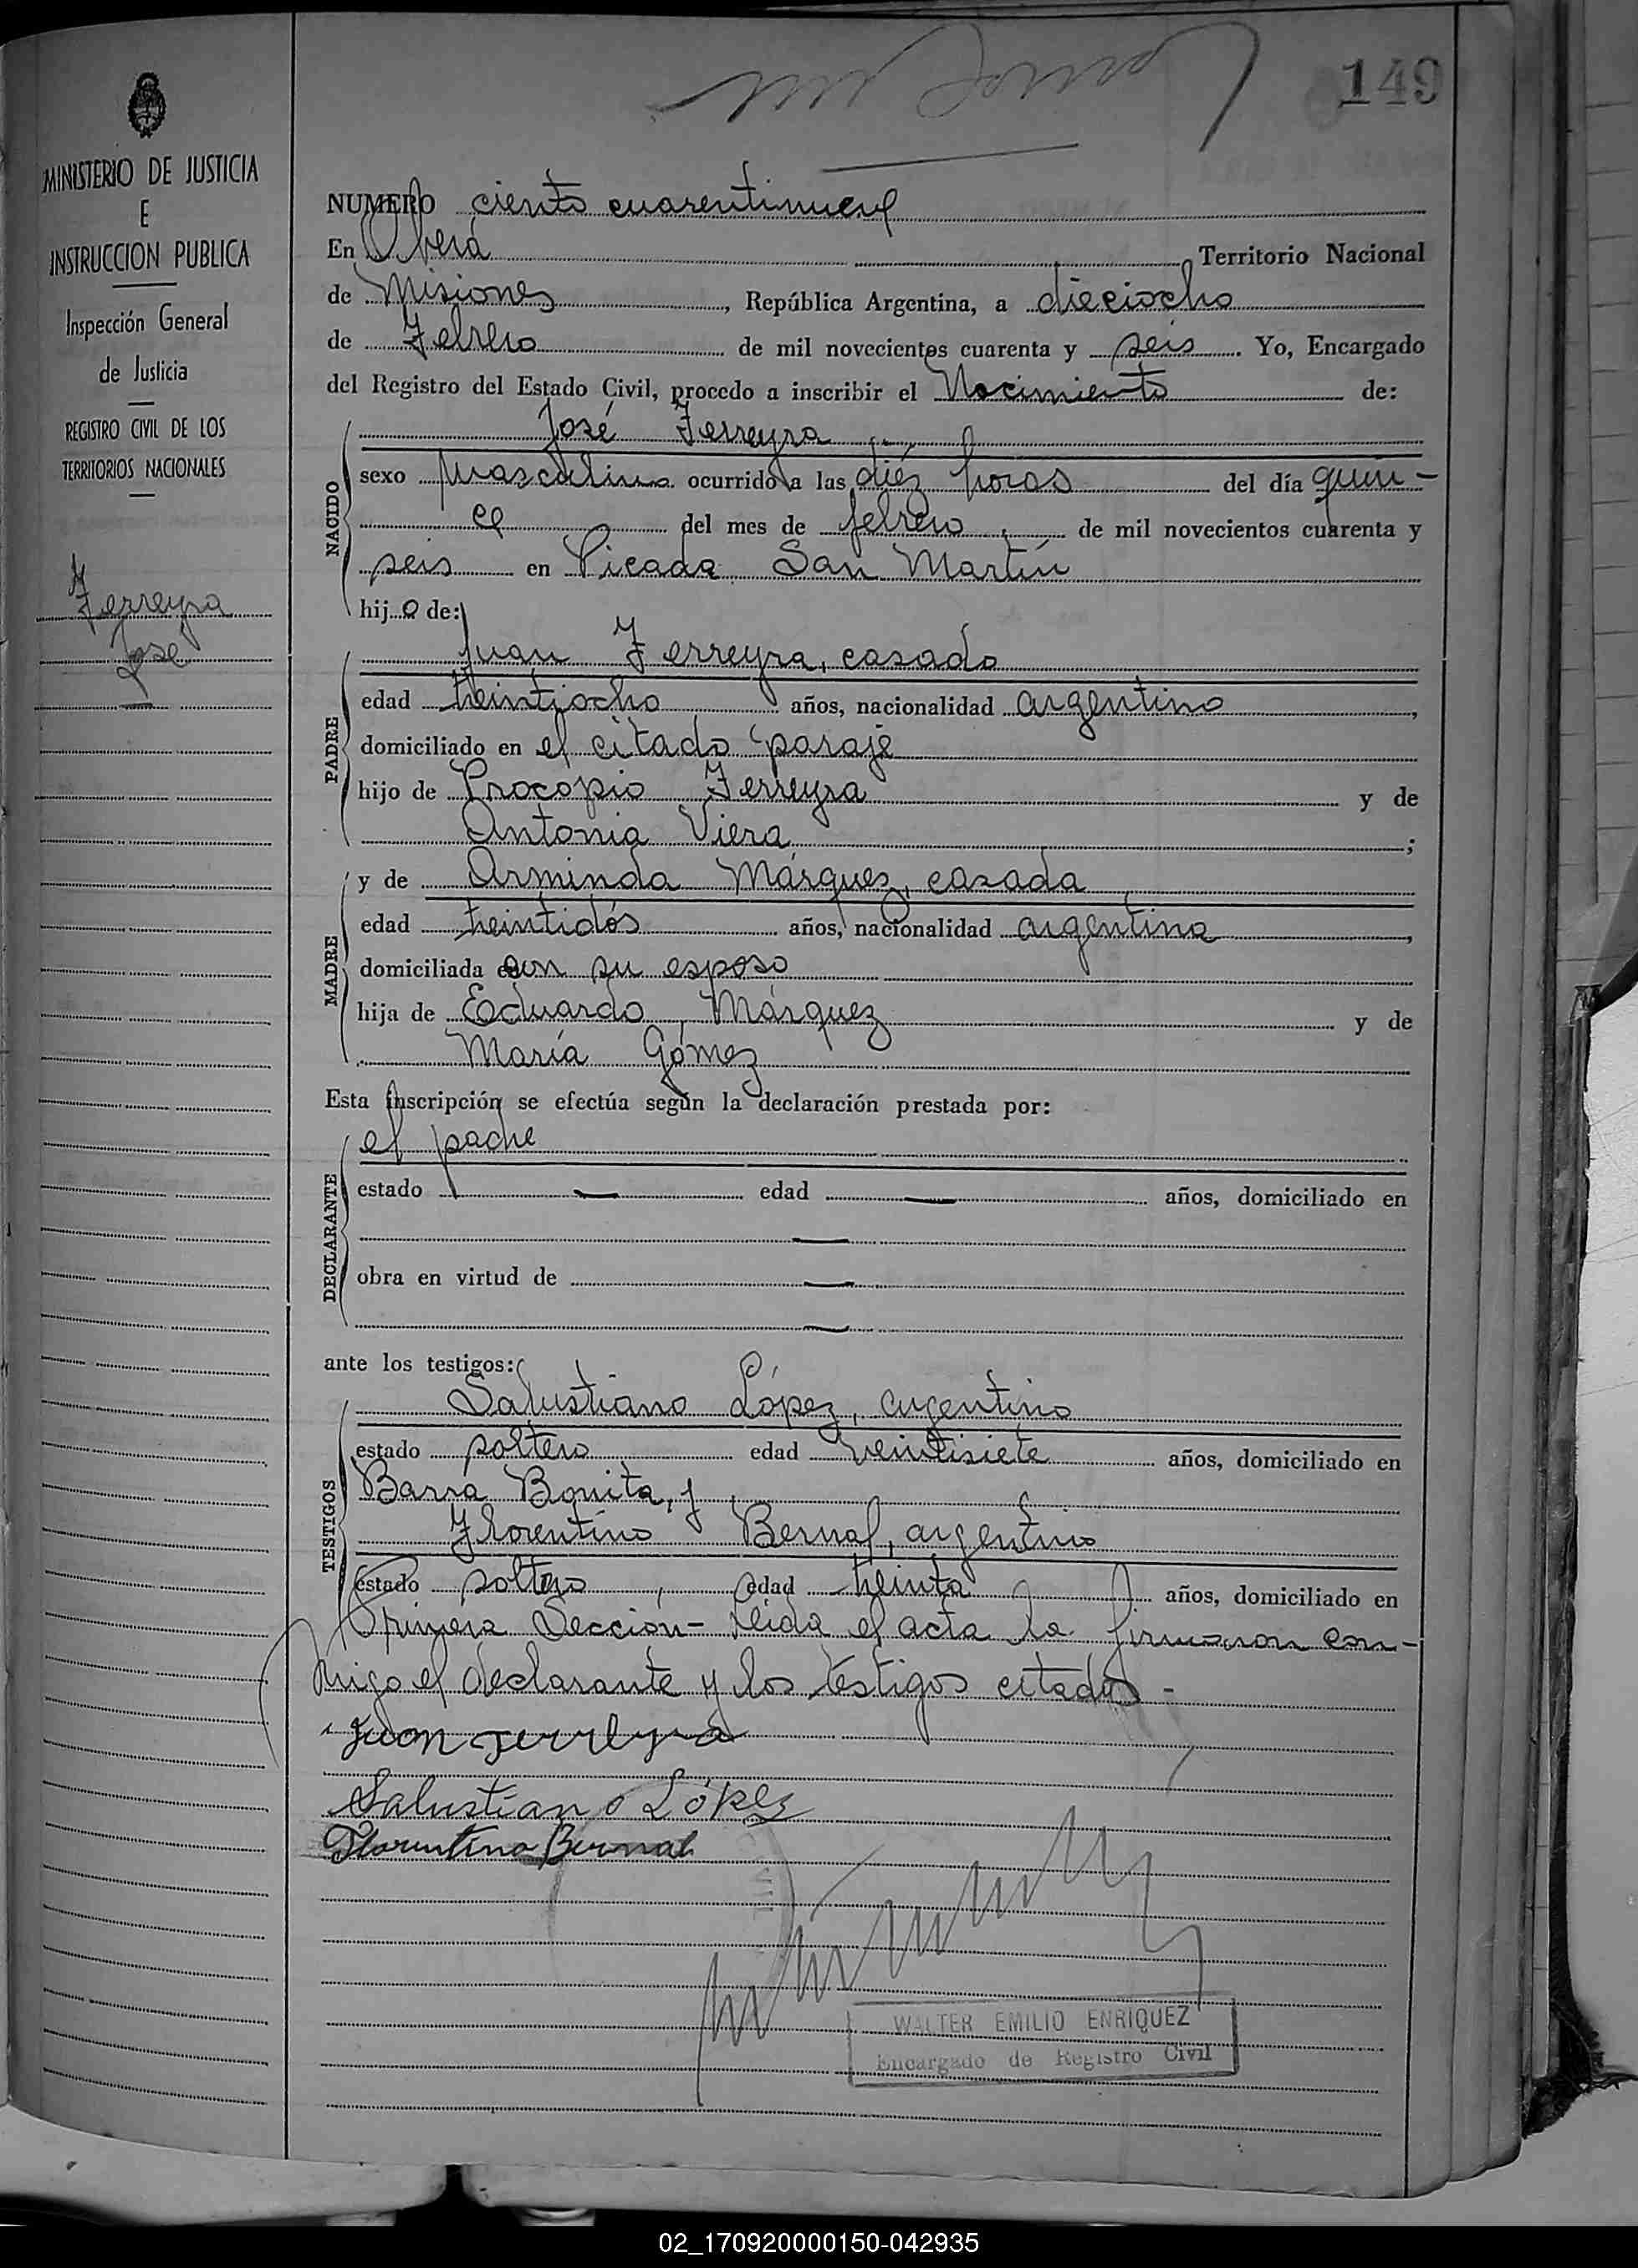 149
MINISTERIO DE JUSTICIA
E
INSTRUCCION PUBLICA
Inspección General
de Justicia
REGISTRO CIVIL DE LOS
TERRITORIOS NACIONALES
Ferreyra
José
NUMERO ciento cuarentinueve
En Oberá Territorio Nacional
de Misiones, República Argentina, a dieciocho
de Febrero de mil novecientos cuarenta y seis. Yo, Encargado
del Registro del Estado Civil, procedo a inscribir el Nacimiento de:
NACIDO
José Ferreyra
sexo masculino ocurrido a las diéz horas del día quin-
ce del mes de febrero de mil novecientos cuarenta y
seis en Picada San Martín
hijo de:
PADRE
Juan Ferreyra, casado
edad treintiocho años, nacionalidad argentino,
domiciliado en el citado paraje
hijo de Procopio Ferreyra y de
Antonia Viera;
MADRE
y de Arminda Márquez, casada
edad treintidós años, nacionalidad argentina,
domiciliada con su esposo
hija de Eduardo Márquez y de
María Gómez
Esta inscripción se efectúa según la declaración prestada por:
DECLARANTE
el padre
estado — edad — años, domiciliado en
—
obra en virtud de —
—
ante los testigos:
TESTIGOS
Salustiano López, argentino
estado soltero edad veintisiete años, domiciliado en
Barra Bonita, y
Florentino Bernal, argentino
estado soltero, edad treinta años, domiciliado en
Primera Sección- Leida el acta la firmaron con-
migo el declarante y los testigos citados -
Juan Ferreyra
Salustiano López
Florentino Bernal
WALTER EMILIO ENRIQUEZ
Encargado de Registro Civil
02_170920000150-042935